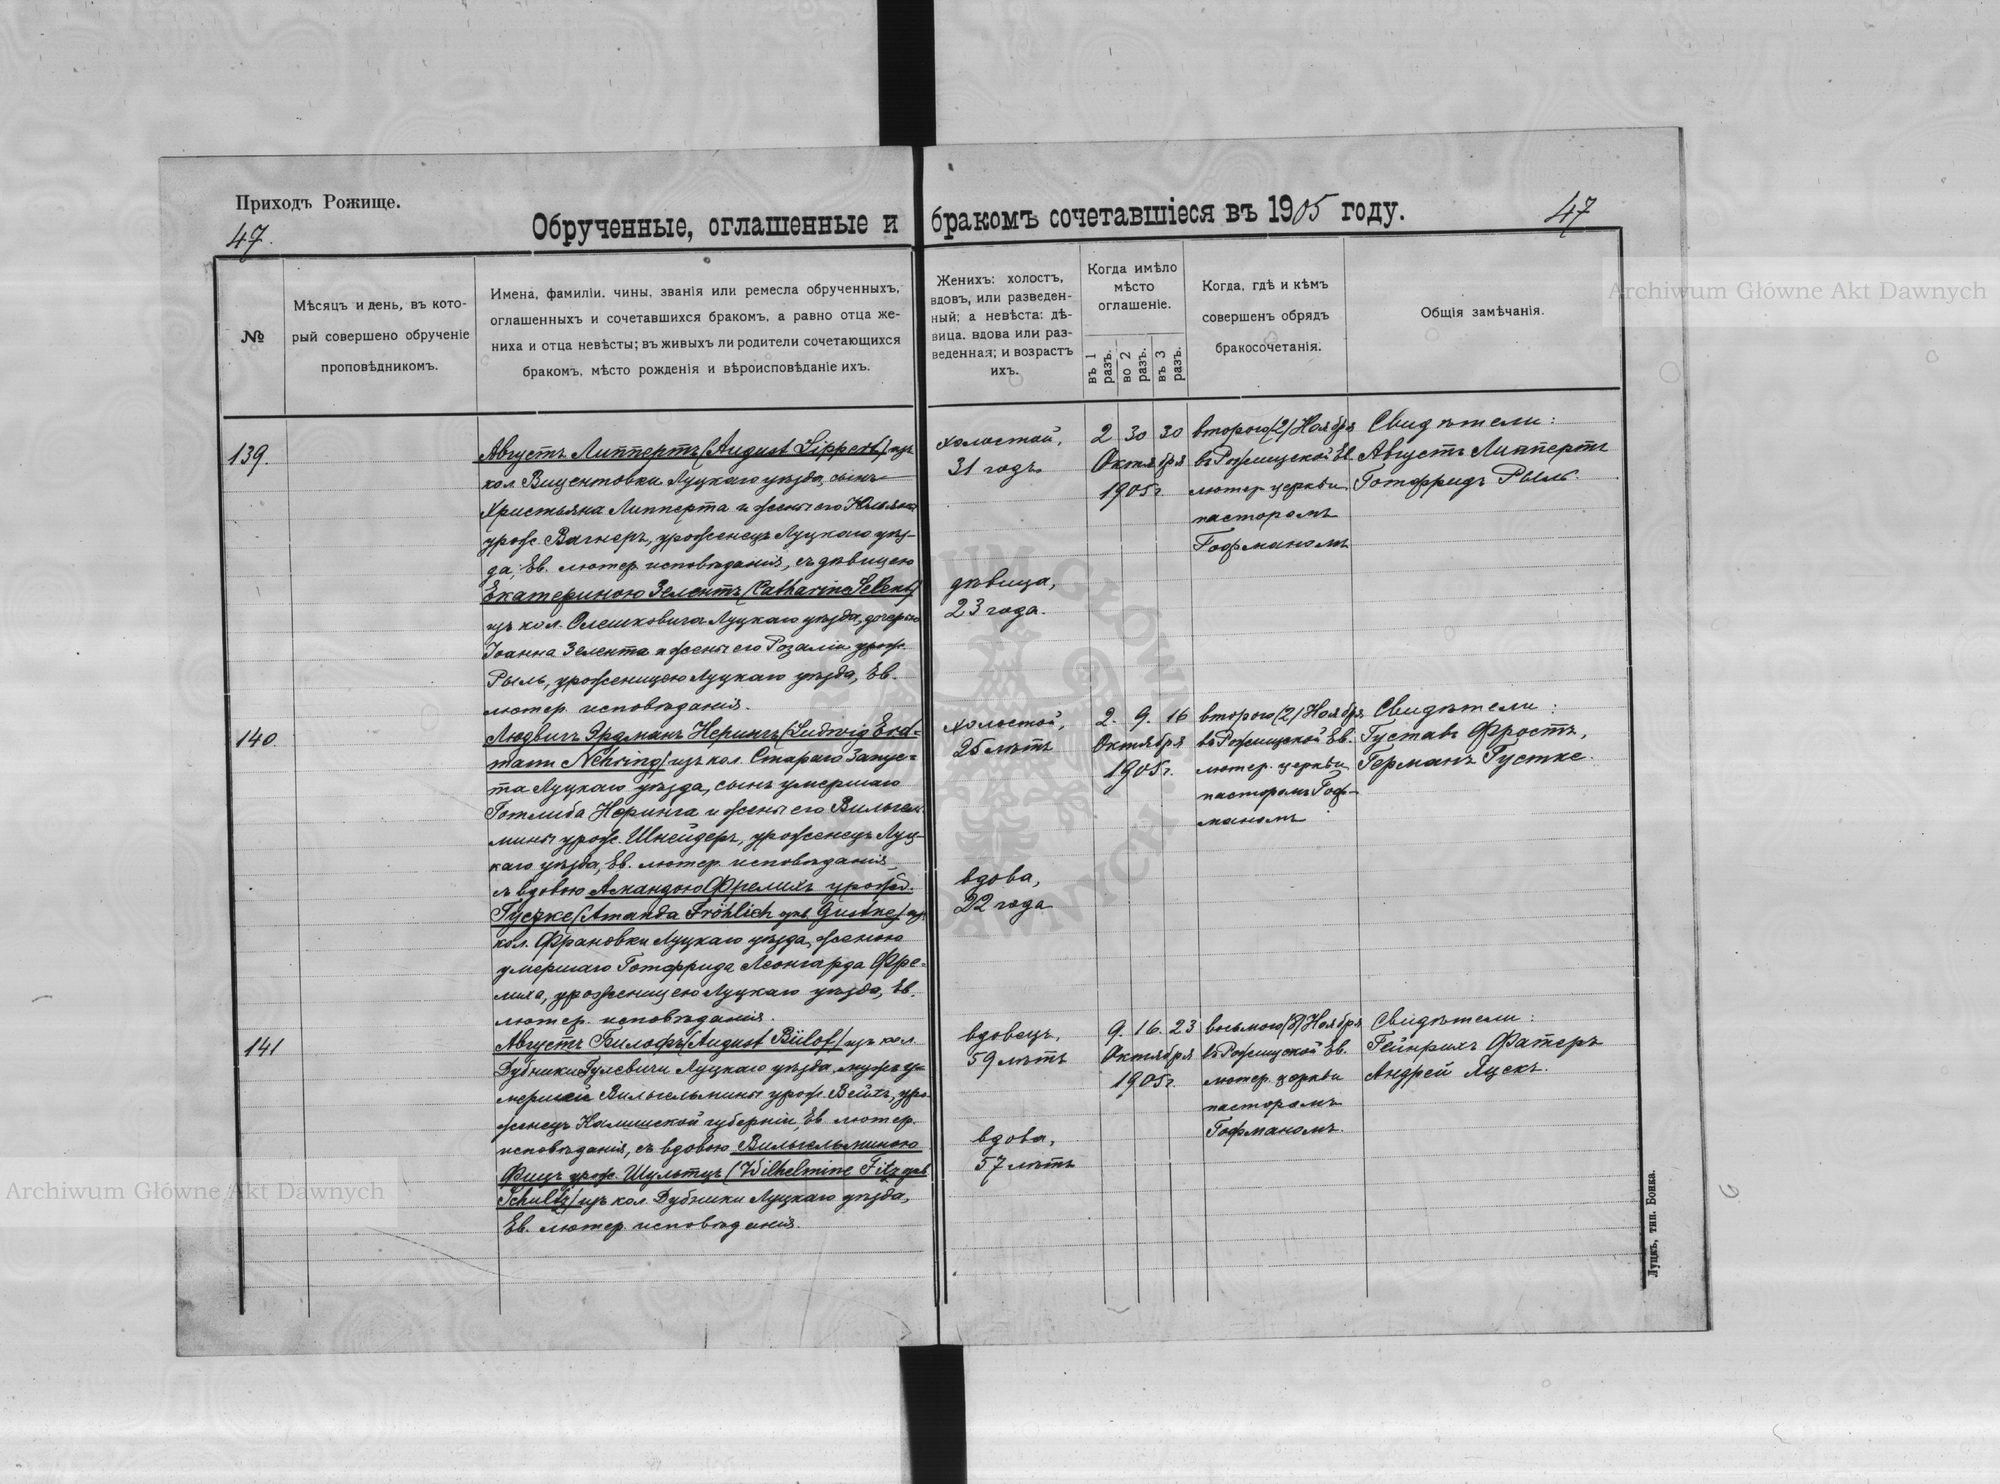 Приходъ Рожище.
47.
Обрученные, оглашенные и бракомъ сочетавшіеся въ 1905 году.
47
№
Мѣсяцъ и день, въ кото-
рый совершено обрученіе
проповѣдникомъ.
Имена, фамиліи, чины, званія или ремесла обрученныхъ,
оглашенныхъ и сочетавшихся бракомъ, а равно отца же-
ниха и отца невѣсты; въ живыхъ ли родители сочетающихся
бракомъ, мѣсто рожденія и вѣроисповѣданіе ихъ.
Женихъ: холостъ,
вдовъ, или разведен-
ный; а невѣста: дѣ-
вица, вдова или раз-
веденная; и возрастъ
ихъ.
Когда имѣло
мѣсто
оглашеніе.
въ 1 разъ.
во 2 разъ.
въ 3 разъ.
Когда, гдѣ и кѣмъ
совершенъ обрядъ
бракосочетанія.
Общія замѣчанія.
139.
Августъ Липпертъ (August Lippert) изъ
кол. Вицентовки Луцкаго уѣзда, сынъ
Христьяна Липперта и жены его Юльяны
урож. Вагнеръ, уроженецъ Луцкаго уѣз-
да, Ев. лютер. исповѣданія, съ дѣвицею
Екатериною Зелентъ (Catharina Selent)
изъ кол. Олешковича Луцкаго уѣзда, дочерью
Іоанна Зелента и жены его Розаліи урож.
Рыль, уроженицею Луцкаго уѣзда, Ев.
лютер. исповѣданія.
холостой,
31 годъ
дѣвица,
23 года.
2 30 30
Октября
1905 г.
второго (2) Ноября
въ Рожищской Ев.
лютер. церкви
пасторомъ
Гофманомъ
Свидѣтели:
Августъ Липпертъ
Готфридъ Рыль.
140
Людвигъ Эрдманъ Нерингъ (Ludwig Erd-
mann Nehring) изъ кол. Стараго Запус-
та Луцкаго уѣзда, сынъ умершаго
Готлиба Неринга и жены его Вильгель
мины урож. Шнейдеръ, уроженецъ Луц-
каго уѣзда, Ев. лютер. исповѣданія,
съ вдовою Амандою Фрелихъ урожд.
Густке (Amanda Fröhlich geb. Gustke) изъ
кол. Франовки Луцкаго уѣзда, женою
умершаго Готфрида Леонгарда Фре-
лиха, уроженицею Луцкаго уѣзда, Ев.
лютер. исповѣданія.
холостой,
25 лѣтъ
вдова,
22 года
2. 9. 16
Октября
1905 г.
второго (2) Ноября
въ Рожищской Ев.
лютер. церкви
пасторомъ Гоф-
маномъ
Свидѣтели:
Густавъ Фростъ,
Германъ Густке.
141
Августъ Билофъ (August Bülof) изъ кол.
Дубники Гулевичи Луцкаго уѣзда, мужъ у-
мершей Вильгельмины урож. Вейхъ, уро-
женецъ Калишской губерніи, Ев. лютер.
исповѣданія, съ вдовою Вильгельминою
Фицъ урож. Шульцъ (Wilhelmine Fitz geb.
Schultz) изъ кол. Дубники Луцкаго уѣзда,
Ев. лютер. исповѣданія.
вдовецъ,
59 лѣтъ
вдова,
57 лѣтъ
9. 16. 23
Октября
1905 г.
восьмого (8) Ноября
въ Рожищской Ев.
лютер. церкви
пасторомъ
Гофманомъ.
Свидѣтели:
Гейнрихъ Фатеръ
Андрей Яцекъ.
Луцкъ, тип. Бонка.
Archiwum Główne Akt Dawnych
Archiwum Główne Akt Dawnych